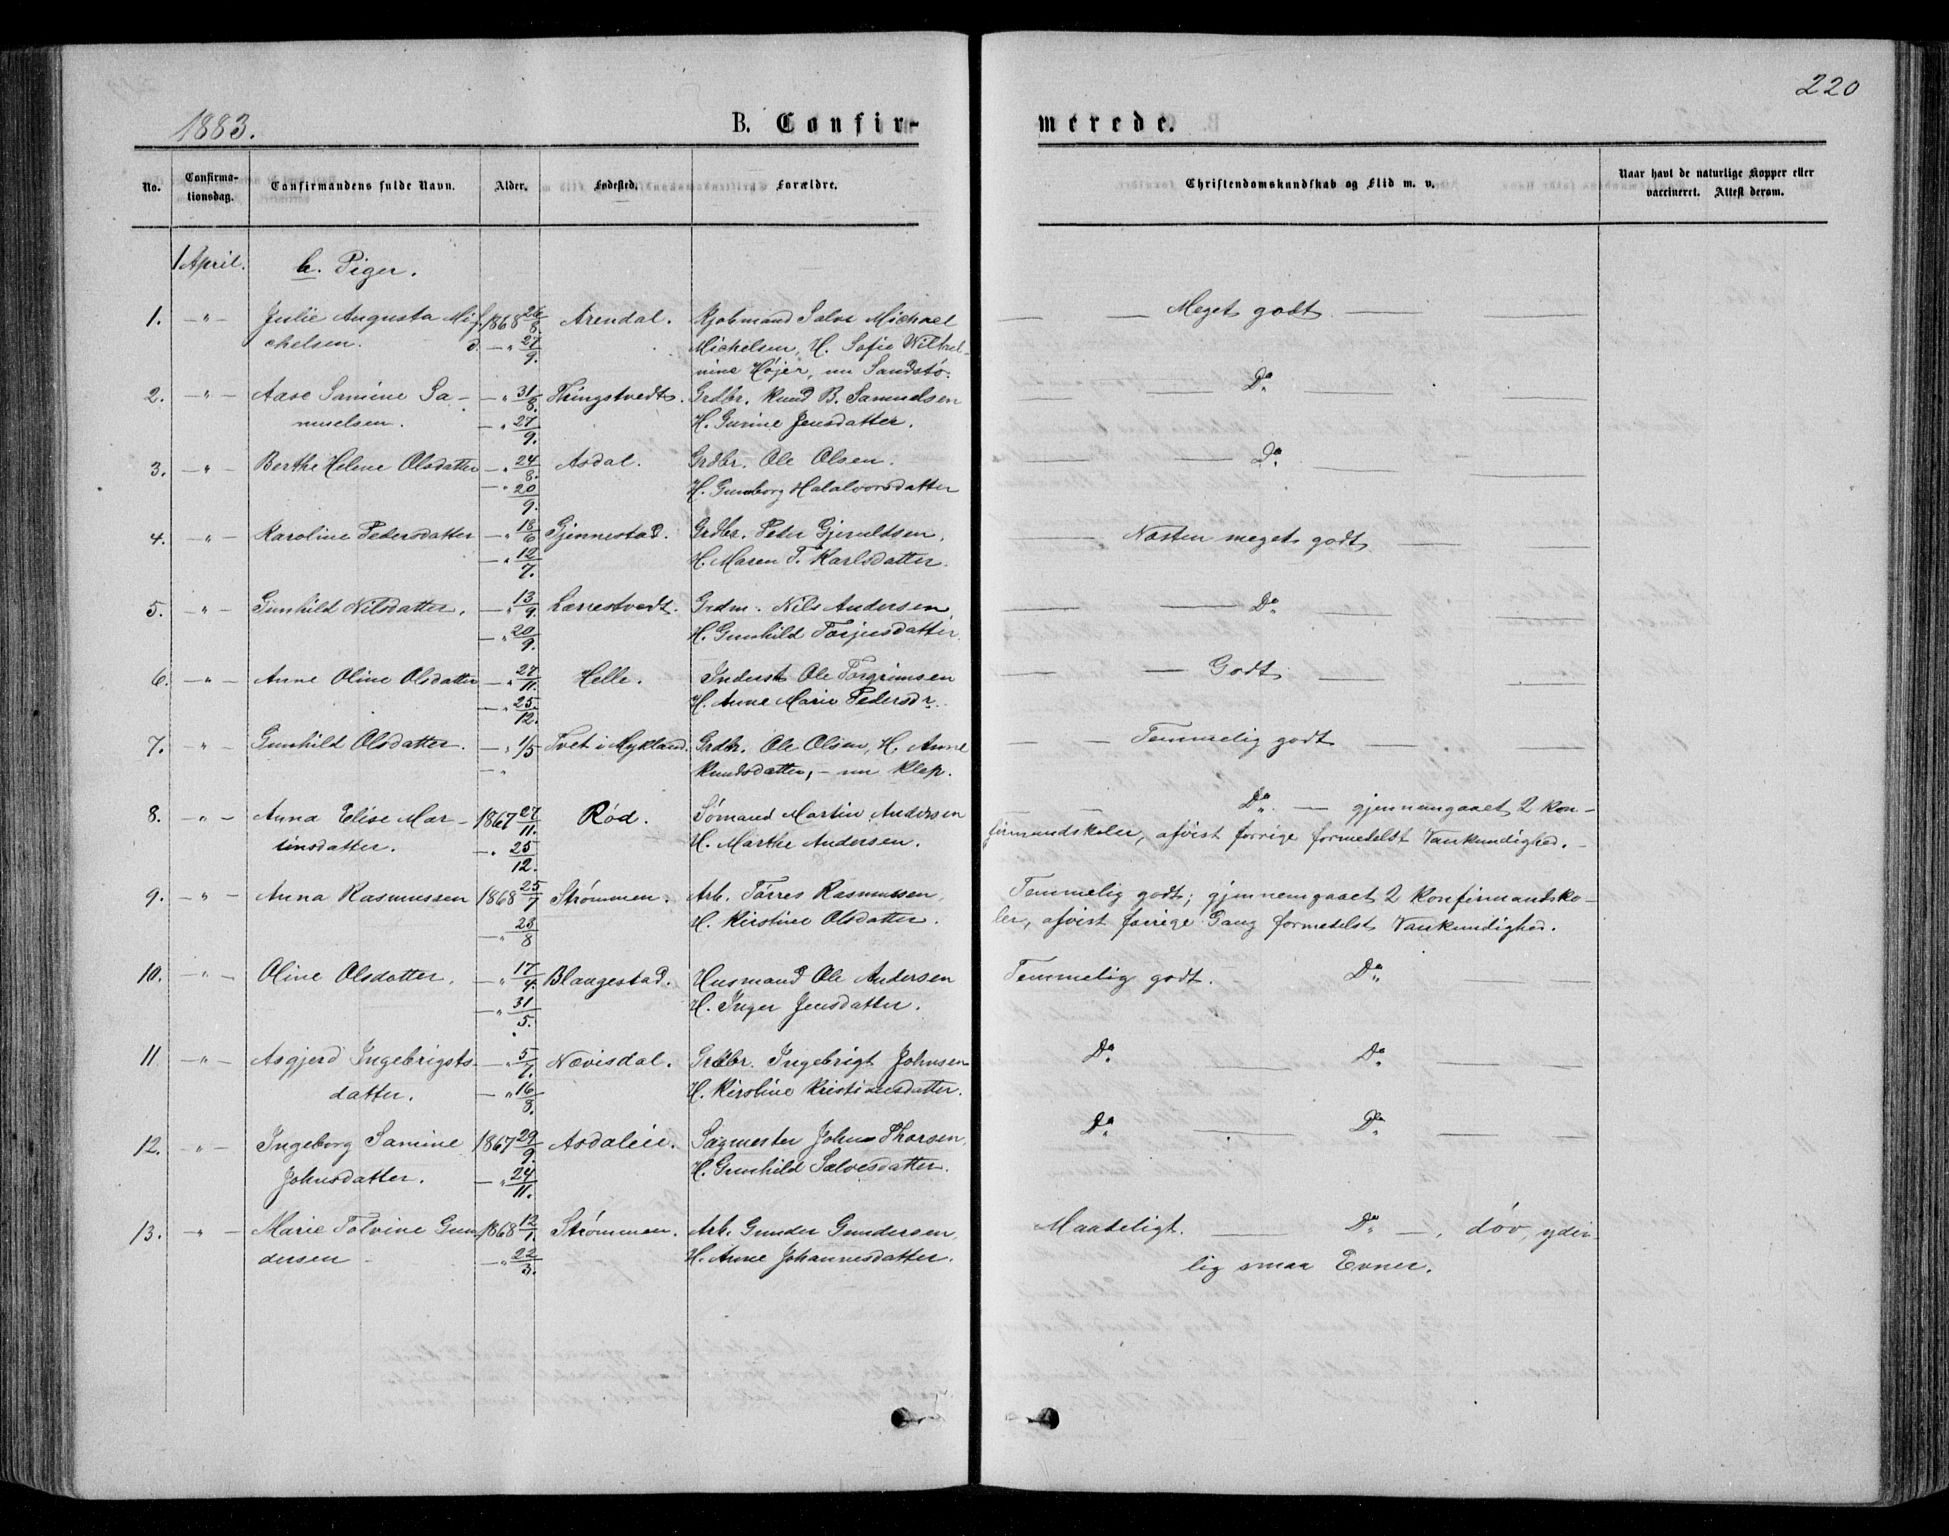 220
1883.
B. Confir-
merede.
No.
Confirma-
tionsdag.
Confirmandens fulde Navn.
Alder.
Fødested.
Forældre.
Christendomskundskab og Flid m. v.
Naar havt de naturlige Kopper eller
vaccineret. Attest derom.
1 April. b. Piger.
1. — " — Julie Augusta Mi- f. 1868 26/8. Arendal. Kjøbmand Salve Michael — — Meget godt. — —
chelsen. d. — " 27/9. Michelsen, H. Sofie Wilhel-
mine Højer, nu Sandstø.
2. — " — Aase Samine Sa- — " 31/8. Thingstvedt. Grdbr. Knud B. Samuelsen — — Do. — —
muelsen. — " 27/9. H. Gurine Jensdatter.
3. — " — Berthe Helene Olsdatter — " 24/8. Asdal. Grdbr. Ole Olsen. — — Do. — —
— " 20/9. H. Gunborg Halalvorsdatter
4. — " — Karoline Pedersdatter — " 18/6 Gjennestad. Grdbr. Peder Gjeruldsen, — Næsten meget godt — —
— " 12/7. H. Maren T. Karlsdatter.
5. — " — Gunhild Nilsdatter. — " 13/9. Lærrestvedt. Grdm. Nils Andersen — — Do. — —
— " 20/9. H. Gunhild Torjusdatter.
6. — " — Anne Oline Olsdatter — " 27/11. Helle. Inderst Ole Torgrimsen — — Godt. — —
— " 25/12. H. Anne Marie Pedersdr.
7. — " — Gunhild Olsdatter. — " 1/5 Tvet i Mykland. Grdbr. Ole Olsen, H. Anne — — Temmelig godt — —
— " Knudsdatter, — nu Klep.
8. — " — Anna Elise Mar- 1867 27/11. Rød. Sømand Martin Andersen — — Do. — gjennemgaaet 2 Kon-
tinsdatter. — " 25/12. H. Marthe Andersen. firmandskoler, afvist forrige formedelst Vankundighed. —
9. — " — Anna Rasmussen 1868 25/7 Strømmen. Arb. Tørres Rasmussen, Temmelig godt; gjennemgaaet 2 Konfirmandsko-
— " 23/8 H. Kirstine Olsdatter. ler, afvist forrige Gang formedelst Vankundighed.
10. — " — Oline Olsdatter. — " 17/4. Blaugestad. Husmand Ole Andersen Temmelig godt. Do. — —
— " 31/5. H. Inger Jensdatter.
11 — " — Asgjerd Ingebrigts- — " 5/7. Nævisdal. Grdbr. Ingebrigt Johnsen Do. Do. — —
datter. — " 16/8. H. Kirstine Kristiansdatter.
12. — " — Ingeborg Samine 1867 29/9. Asdaleie. Sagmester John Thorsen, Do. Do. — —
Johnsdatter. — " 24/11. H. Gunhild Salvesdatter.
13. — " — Marie Tolvine Gun- 1868 12/1. Strømmen. Arb. Gunder Gundersen, Maadeligt. — Do. —, døv, yder-
dersen — — " 22/3. H. Anne Johannesdatter. lig smaa Evner.